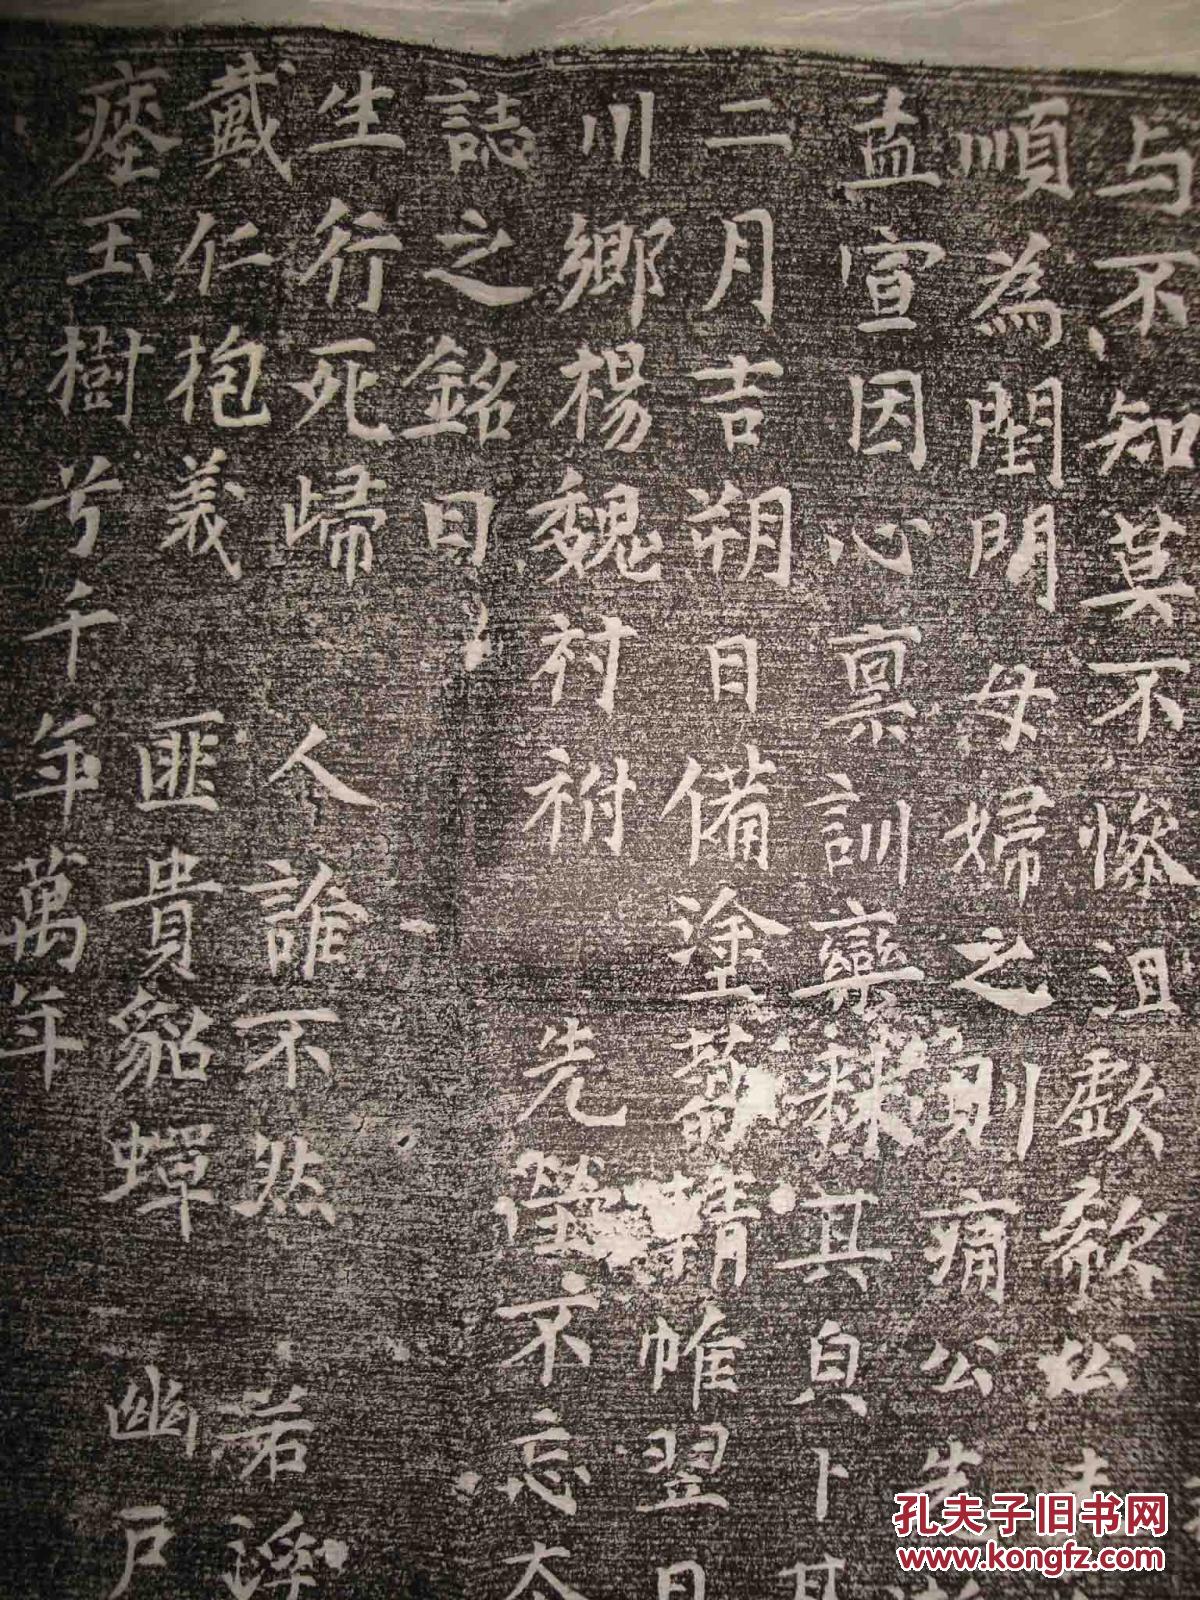 与不知莫不慘沮歔欷公
順為閨門母婦之則痛公先
孟宣因心禀訓欒棘其貞卜其
二月吉朔日備塗蒭精帷翌日
川鄉楊魏村祔先塋不忘太
誌之銘曰
生行死歸人誰不然若浮
戴仁抱義匪貴貂蟬幽戶
瘞玉樹兮千年萬年
孔夫子旧书网
www.kongfz.com